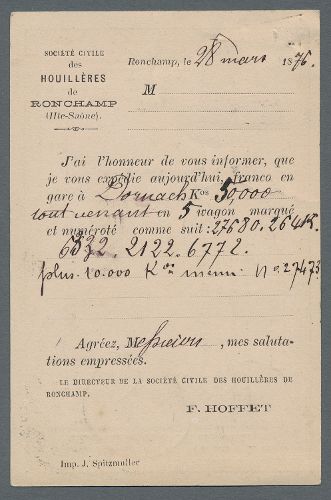 SOCIÉTÉ CIVILE
des
HOUILLÈRES
de
RONCHAMP
(Hte-Saône).
Ronchamp, le 28 mars 1876.
M
J'ai l'honneur de vous informer, que
je vous expédie aujourd'hui, franco en
gare à Dornach Kos 50,000
tout venant en 5 wagon marqué
et numéroté comme suit: 27680. 26415.
6532. 2122. 6772.
plus 10.000 Kos menu. No 27473
Agréez, Messieurs, mes saluta-
tions empressées.
LE DIRECTEUR DE LA SOCIÉTÉ CIVILE DES HOUILLÈRES DE
RONCHAMP.
F. HOFFET
Imp. J. Spitzmuller